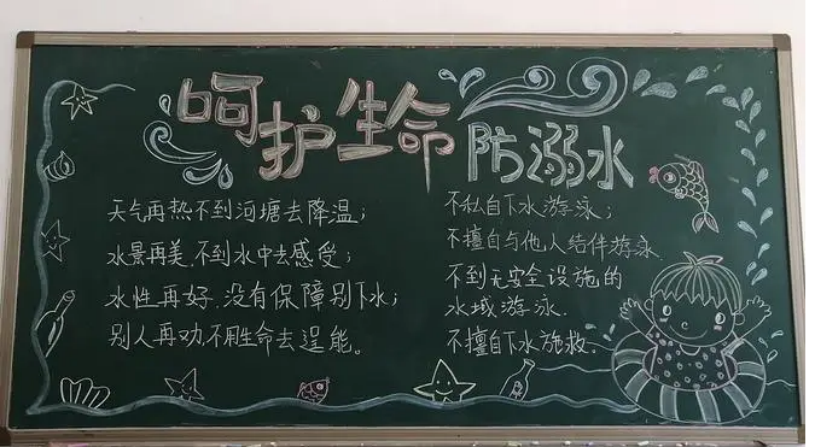 呵护生命 防溺水
天气再热不到河塘去降温；
水景再美，不到水中去感受；
水性再好，没有保障别下水；
别人再劝，不用生命去逞能。
不私自下水游泳；
不擅自与他人结伴游泳.
不到无安全设施的
水域游泳.
不擅自下水施救.